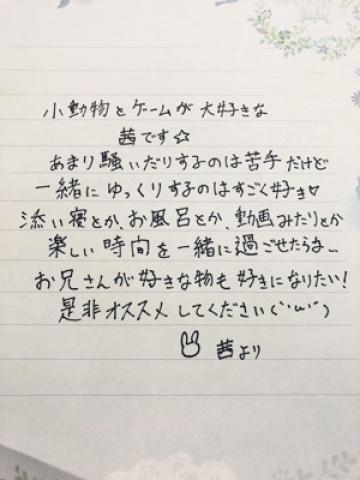 小動物とゲームが大好きな
茜です☆
あまり騒いだりするのは苦手だけど
一緒にゆっくりするのはすごく好き♡
添い寝とか、お風呂とか、動画みたりとか
楽しい時間を一緒に過ごせたらな...
お兄さんが好きな物も好きになりたい!
是非オススメしてください(´･ω･`)
茜より